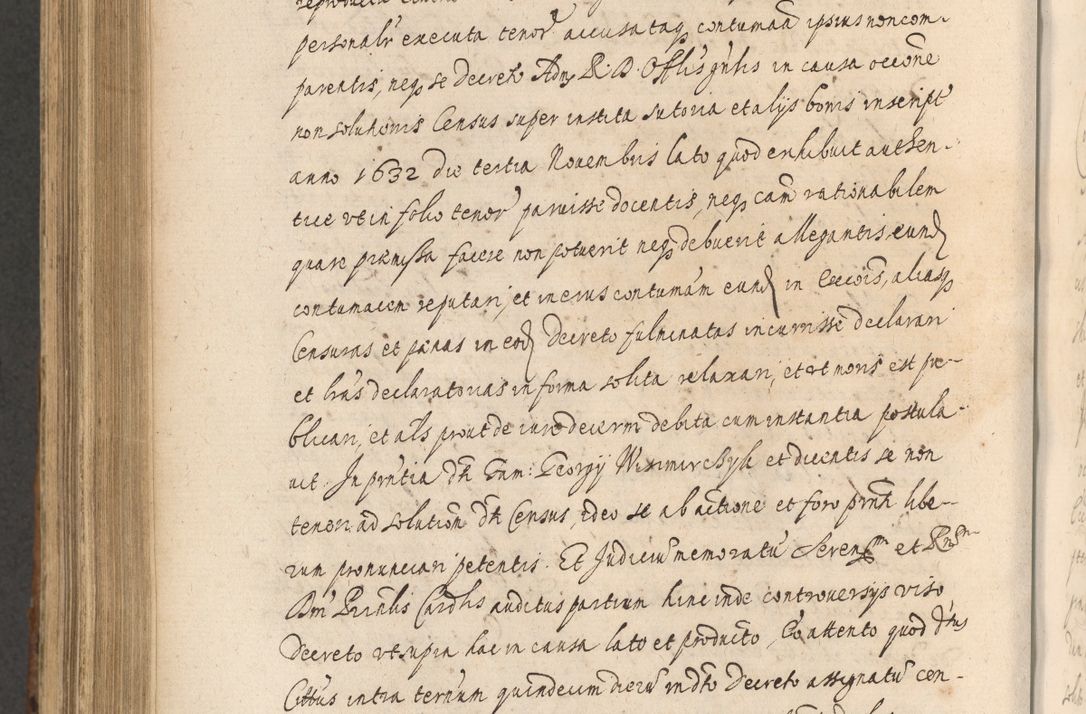 personalr executa tenore accusataq contumacia ipsius noncom-
parentis, neq se decreto Adm R. D. Offlis gnlis in causa occõne
non solutionis Census super instita sutoria et alijs bonis inscript
anno 1632 die tertia Novembris lato quod exhibuit authen-
tice ut in folio tenore paruisse docentis, neq cam rationabilem
quare præmissa facere non potuerit neq debuerit allegantis, eund
contumacem reputari, et in eius contumãm eund in Excois, aliasq
Censuras et pænas in eod decreto fulminatas incurrisse declarari
et lras declaratorias in forma solita relaxari, et ut moris est pu-
blicari, et als prout de iure decerni debita cum instantia postula-
uit. In pntia dti Gnm: Georgij et dicentis se non
teneri ad solution dti Census, ideo se ab actione et foro pnti libe-
rum pronunciari petentis. Et Judiciu memoratu Serenssm et Rnssm
Dni Prinlis Cardlis auditus partium hinc inde controversijs viso
Decreto ut supra hac in causa lato et producto, Eo attento quod dtus
Cittus intra ternum quindecim dieru in dto Decreto assignatu cen-